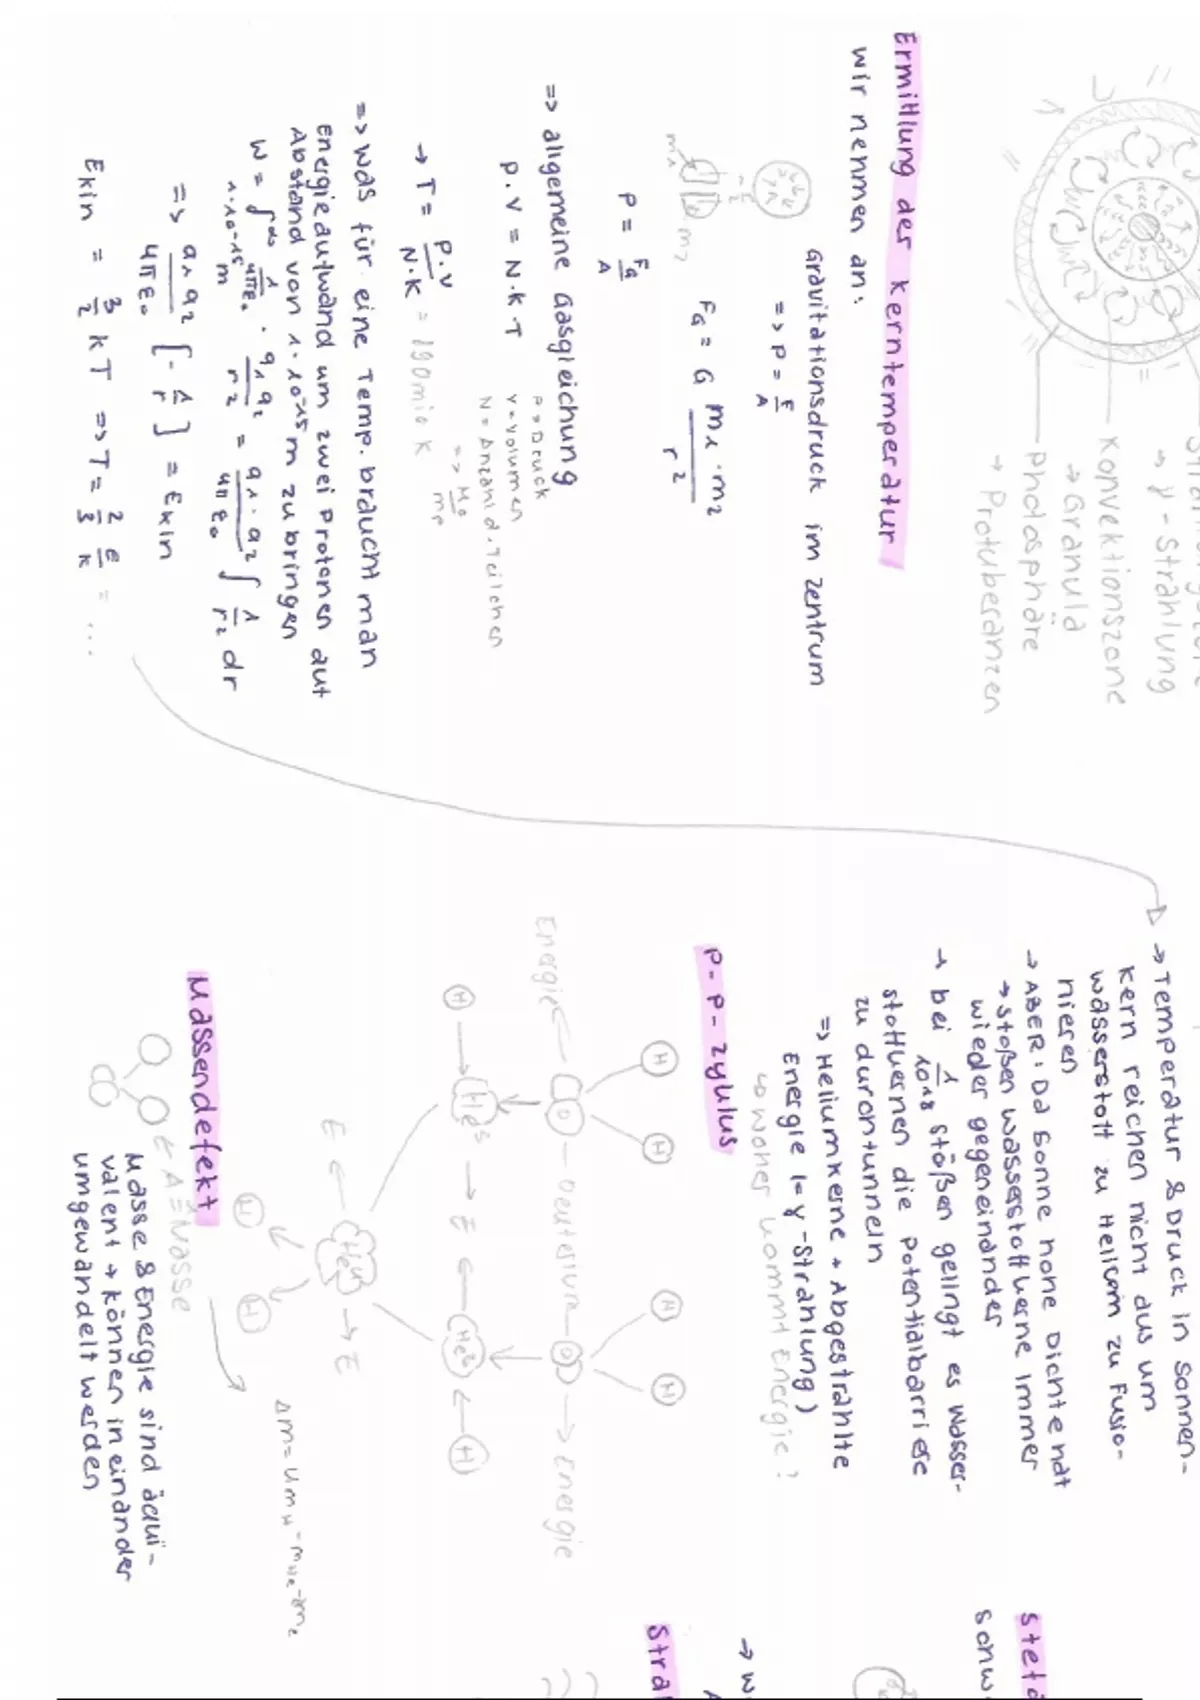 → γ-Strahlung
Konvektionszone
→ Granula
Photosphäre
→ Protuberanzen
Ermittlung der Kerntemperatur
Wir nehmen an:
Gravitationsdruck im Zentrum
=> P = F/A
F_G = G m1·m2/r²
m1
m2
P = F_G/A
=> allgemeine Gasgleichung
p·V = N·k·T
p => Druck
V = Volumen
N = Anzahl d. Teilchen
=> M⊙/mp
→ T = p·V/N·k = 190 mio K
=> Was für eine Temp. braucht man
Energieaufwand um zwei Protonen auf
Abstand von 1·10⁻¹⁵ m zu bringen
W = ∫ 1/4πε₀ · q1q2/r² = q1·q2/4πε₀ ∫ 1/r² dr
∞
1·10⁻¹⁵ m
=> q1q2/4πε₀ [-1/r] = Ekin
Ekin = 3/2 kT => T = 2/3 E/k = ...
→ Temperatur & Druck in Sonnen-
kern reichen nicht aus um
Wasserstoff zu Helium zu fusio-
nieren
→ ABER: Da Sonne hohe Dichte hat
→ stoßen Wasserstoffkerne immer
wieder gegeneinander
→ bei 1/10¹⁸ stößen gelingt es Wasser-
stoffkernen die Potentialbarriere
zu durchtunneln
=> Heliumkerne + Abgestrahlte
Energie (= γ-Strahlung)
↳ woher kommt Energie?
P-P-Zyklus
H H H H
Energie ← D — Deuterium — D → Energie
H → He³ → E ← He³ ← H
E ← He⁴ → E
H H
Δm = 4mH - mHe - 2me
Massendefekt
E ≙ Masse
Masse & Energie sind äqui-
valent → können in einander
umgewandelt werden